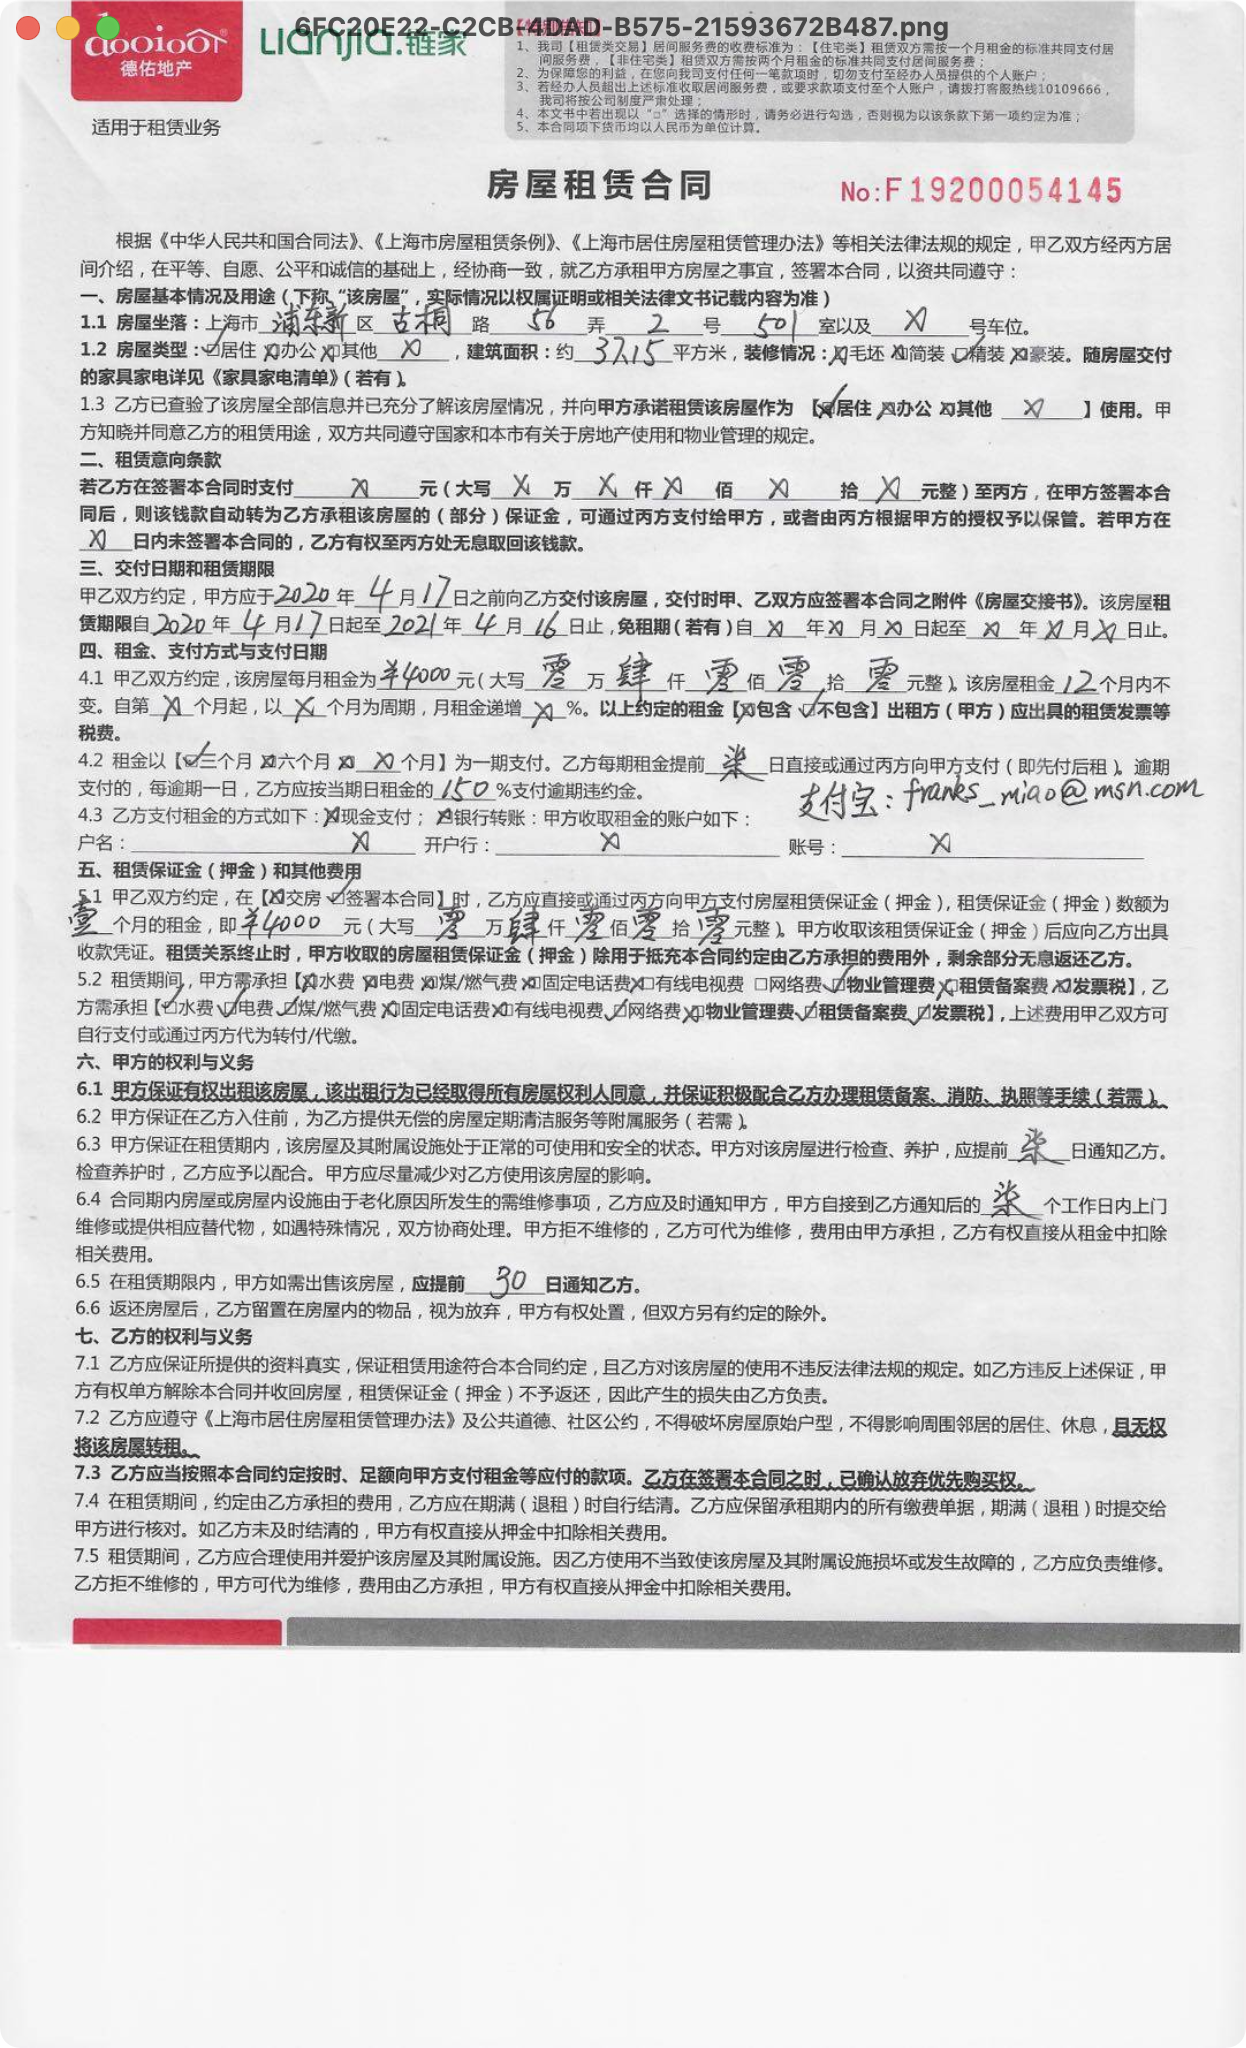 6FC20E22-C2CB-4DAD-B575-21593672B487.png
dooioor
德佑地产
Lianjia.链家
适用于租赁业务
1、我司【租赁类交易】居间服务费的收费标准为:【住宅类】租赁双方需按一个月租金的标准共同支付居
间服务费,【非住宅类】租赁双方需按两个月租金的标准共同支付居间服务费;
2、为保障您的利益,在您向我司支付任何一笔款项时,切勿支付至经办人员提供的个人账户;
3、若经办人员超出上述标准收取居间服务费,或要求款项支付至个人账户,请拨打客服热线10109666,
我司将按公司制度严肃处理;
4、本文书中若出现以“□”选择的情形时,请务必进行勾选,否则视为以该条款下第一项约定为准;
5、本合同项下货币均以人民币为单位计算。
房屋租赁合同
No:F19200054145
根据《中华人民共和国合同法》、《上海市房屋租赁条例》、《上海市居住房屋租赁管理办法》等相关法律法规的规定,甲乙双方经丙方居
间介绍,在平等、自愿、公平和诚信的基础上,经协商一致,就乙方承租甲方房屋之事宜,签署本合同,以资共同遵守:
一、房屋基本情况及用途(下称“该房屋”,实际情况以权属证明或相关法律文书记载内容为准)
1.1 房屋坐落:上海市 浦东新 区 古桐 路 56 弄 2 号 501 室以及 X 号车位。
1.2 房屋类型:☑居住 ☒办公 ☒其他 X ,建筑面积:约 37.15 平方米,装修情况:☒毛坯 ☒简装 ☑精装 ☒豪装。随房屋交付
的家具家电详见《家具家电清单》(若有)。
1.3 乙方已查验了该房屋全部信息并已充分了解该房屋情况,并向甲方承诺租赁该房屋作为 【☑居住 ☒办公 ☒其他 X 】使用。甲
方知晓并同意乙方的租赁用途,双方共同遵守国家和本市有关于房地产使用和物业管理的规定。
二、租赁意向条款
若乙方在签署本合同时支付 X 元(大写 X 万 X 仟 X 佰 X 拾 X 元整)至丙方,在甲方签署本合
同后,则该钱款自动转为乙方承租该房屋的(部分)保证金,可通过丙方支付给甲方,或者由丙方根据甲方的授权予以保管。若甲方在
X 日内未签署本合同的,乙方有权至丙方处无息取回该钱款。
三、交付日期和租赁期限
甲乙双方约定,甲方应于 2020 年 4 月 17 日之前向乙方交付该房屋,交付时甲、乙双方应签署本合同之附件《房屋交接书》。该房屋租
赁期限自 2020 年 4 月 17 日起至 2021 年 4 月 16 日止,免租期(若有)自 X 年 X 月 X 日起至 X 年 X 月 X 日止。
四、租金、支付方式与支付日期
4.1 甲乙双方约定,该房屋每月租金为 ¥4000 元(大写 零 万 肆 仟 零 佰 零 拾 零 元整)。该房屋租金 12 个月内不
变。自第 X 个月起,以 X 个月为周期,月租金递增 X %。以上约定的租金【☒包含 ☑不包含】出租方(甲方)应出具的租赁发票等
税费。
4.2 租金以【☑三个月 ☒六个月 ☒ X 个月】为一期支付。乙方每期租金提前 柒 日直接或通过丙方向甲方支付(即先付后租)。逾期
支付的,每逾期一日,乙方应按当期日租金的 150 %支付逾期违约金。
支付宝:franks_miao@msn.com
4.3 乙方支付租金的方式如下:☒现金支付; ☒银行转账:甲方收取租金的账户如下:
户名: X 开户行: X 账号: X
五、租赁保证金(押金)和其他费用
5.1 甲乙双方约定,在【☒交房 ☑签署本合同】时,乙方应直接或通过丙方向甲方支付房屋租赁保证金(押金),租赁保证金(押金)数额为
壹 个月的租金,即 ¥4000 元(大写 零 万 肆 仟 零 佰 零 拾 零 元整)。甲方收取该租赁保证金(押金)后应向乙方出具
收款凭证。租赁关系终止时,甲方收取的房屋租赁保证金(押金)除用于抵充本合同约定由乙方承担的费用外,剩余部分无息返还乙方。
5.2 租赁期间,甲方需承担【☒水费 ☒电费 ☒煤/燃气费 ☒固定电话费 ☒有线电视费 □网络费 ☑物业管理费 ☒租赁备案费 ☒发票税】,乙
方需承担【☑水费 ☑电费 ☑煤/燃气费 ☒固定电话费 ☒有线电视费 ☑网络费 ☒物业管理费 ☑租赁备案费 ☑发票税】,上述费用甲乙双方可
自行支付或通过丙方代为转付/代缴。
六、甲方的权利与义务
6.1 甲方保证有权出租该房屋,该出租行为已经取得所有房屋权利人同意,并保证积极配合乙方办理租赁备案、消防、执照等手续(若需)。
6.2 甲方保证在乙方入住前,为乙方提供无偿的房屋定期清洁服务等附属服务(若需)。
6.3 甲方保证在租赁期内,该房屋及其附属设施处于正常的可使用和安全的状态。甲方对该房屋进行检查、养护,应提前 柒 日通知乙方。
检查养护时,乙方应予以配合。甲方应尽量减少对乙方使用该房屋的影响。
6.4 合同期内房屋或房屋内设施由于老化原因所发生的需维修事项,乙方应及时通知甲方,甲方自接到乙方通知后的 柒 个工作日内上门
维修或提供相应替代物,如遇特殊情况,双方协商处理。甲方拒不维修的,乙方可代为维修,费用由甲方承担,乙方有权直接从租金中扣除
相关费用。
6.5 在租赁期限内,甲方如需出售该房屋,应提前 30 日通知乙方。
6.6 返还房屋后,乙方留置在房屋内的物品,视为放弃,甲方有权处置,但双方另有约定的除外。
七、乙方的权利与义务
7.1 乙方应保证所提供的资料真实,保证租赁用途符合本合同约定,且乙方对该房屋的使用不违反法律法规的规定。如乙方违反上述保证,甲
方有权单方解除本合同并收回房屋,租赁保证金(押金)不予返还,因此产生的损失由乙方负责。
7.2 乙方应遵守《上海市居住房屋租赁管理办法》及公共道德、社区公约,不得破坏房屋原始户型,不得影响周围邻居的居住、休息,且无权
将该房屋转租。
7.3 乙方应当按照本合同约定按时、足额向甲方支付租金等应付的款项。乙方在签署本合同之时,已确认放弃优先购买权。
7.4 在租赁期间,约定由乙方承担的费用,乙方应在期满(退租)时自行结清。乙方应保留承租期内的所有缴费单据,期满(退租)时提交给
甲方进行核对。如乙方未及时结清的,甲方有权直接从押金中扣除相关费用。
7.5 租赁期间,乙方应合理使用并爱护该房屋及其附属设施。因乙方使用不当致使该房屋及其附属设施损坏或发生故障的,乙方应负责维修。
乙方拒不维修的,甲方可代为维修,费用由乙方承担,甲方有权直接从押金中扣除相关费用。